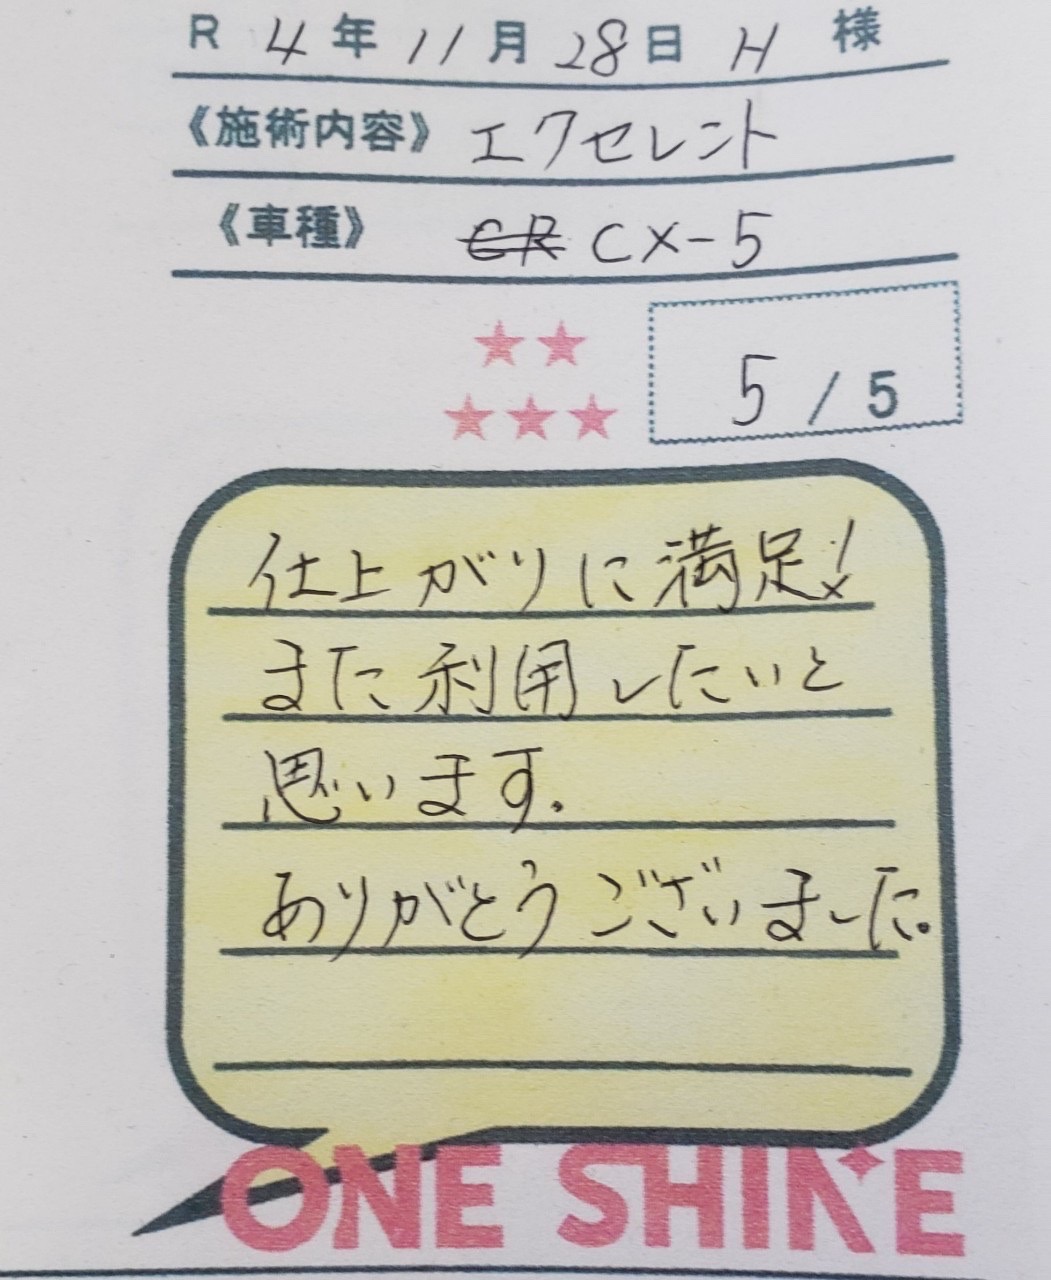 R 4年11月28日 H 様
《施術内容》 エクセレント
《車種》 CR CX-5
★★
★★★
5/5
仕上がりに満足!
また利用したいと
思います.
ありがとうございました。
ONE SHINE